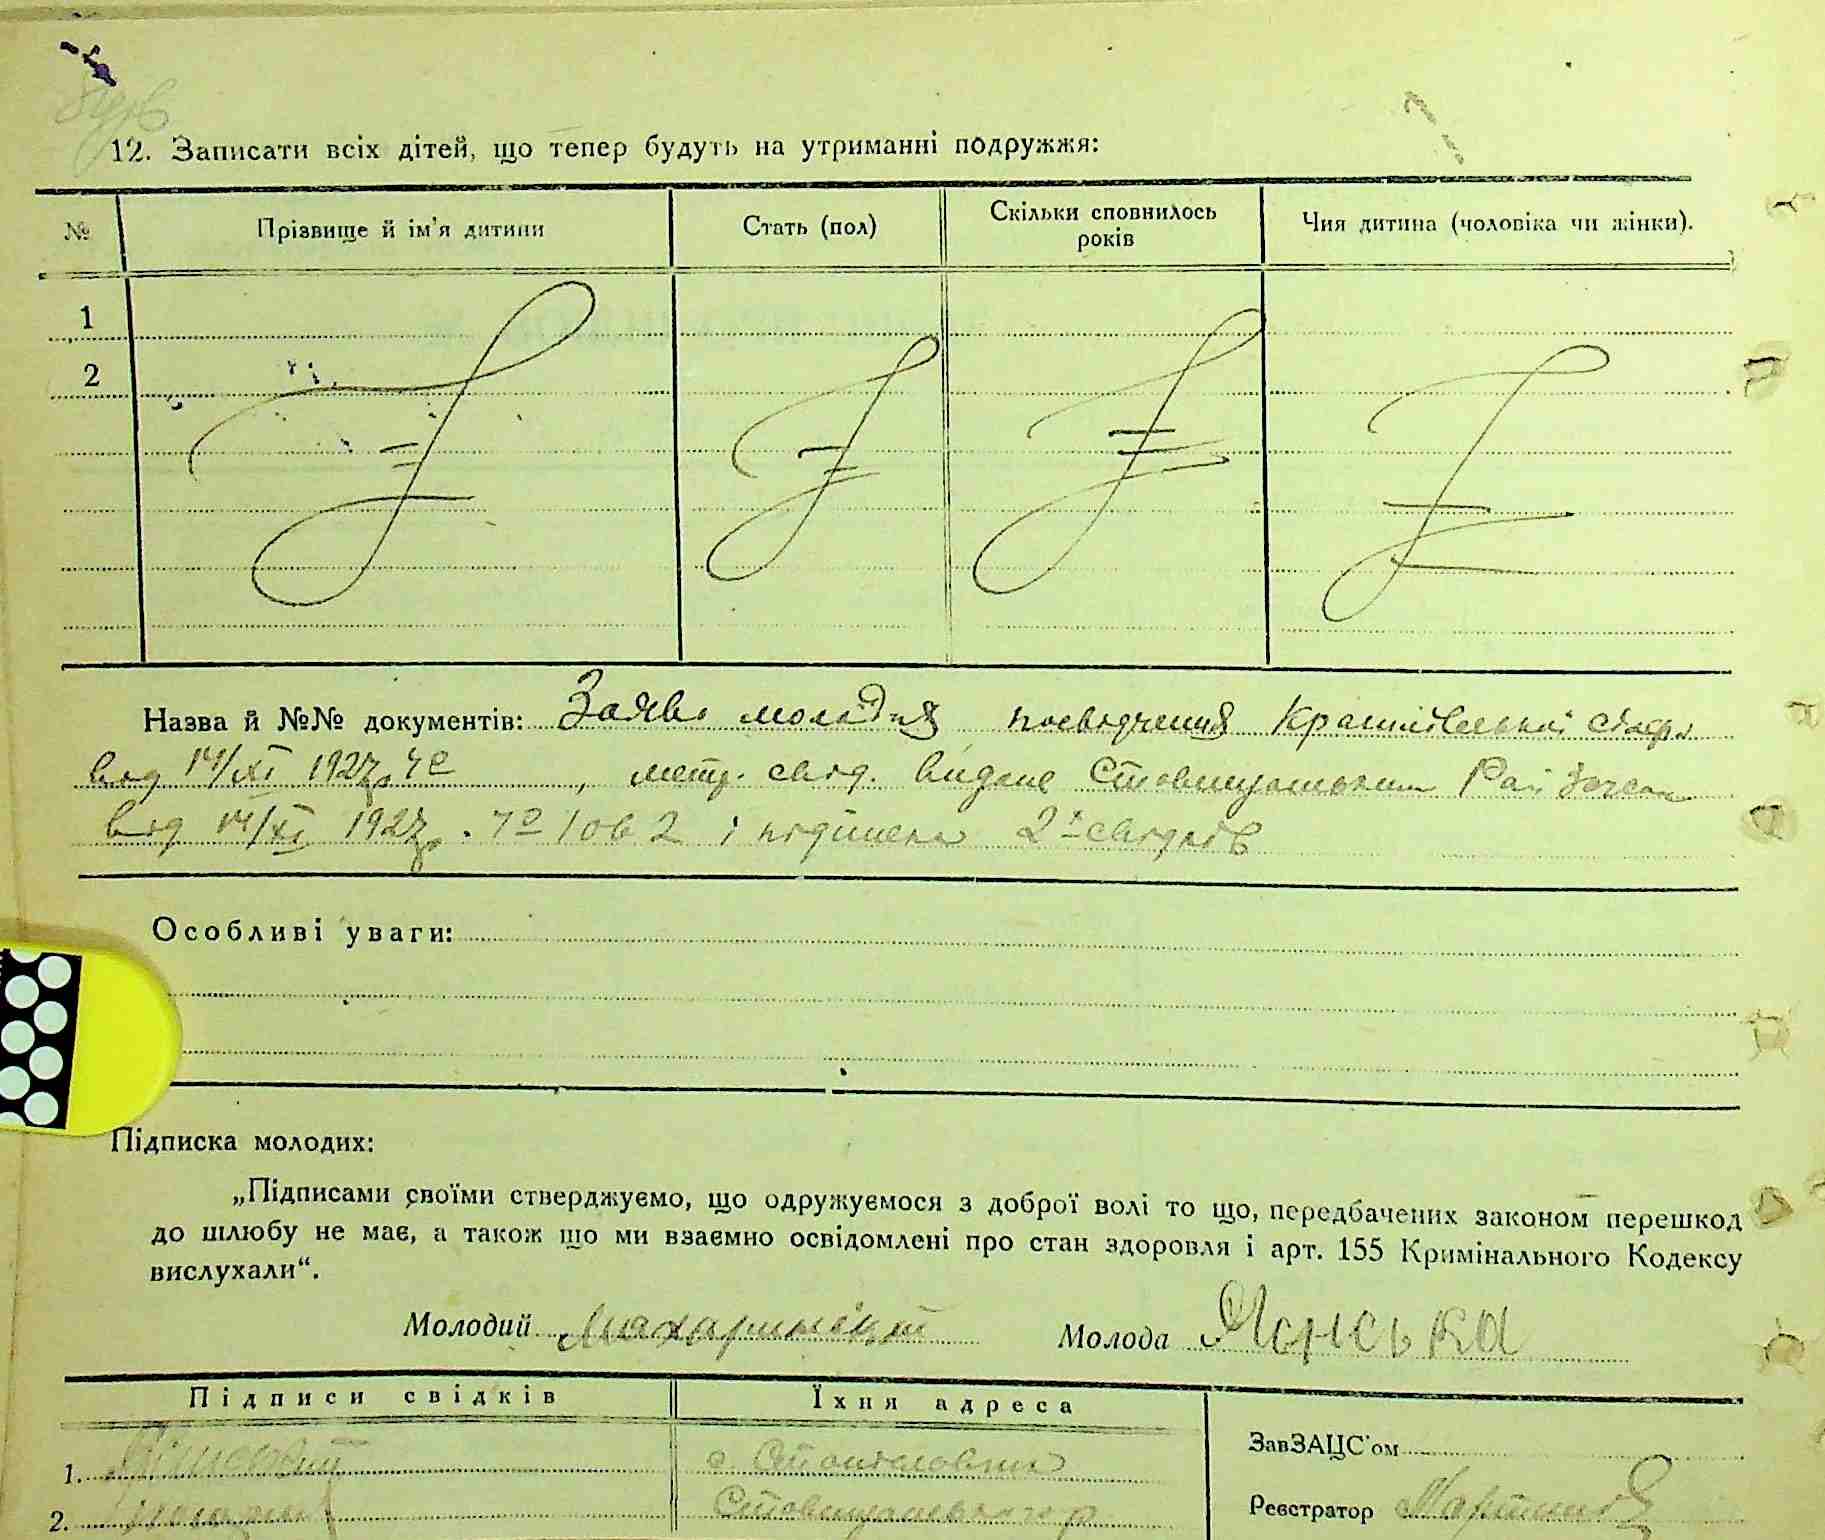 12. Записати всіх дітей, що тепер будуть на утриманні подружжя:
№ Прізвище й ім'я дитини Стать (пол) Скільки сповнилось років Чия дитина (чоловіка чи жінки).
1
2
Назва й №№ документів: Заява молодих посвідчення
від 14/XI 1927 р. , метр. свід. видане Ставищанським
від 14/XI 1927 р. і підписка 2х свідків
Особливі уваги:
Підписка молодих:
„Підписами своїми стверджуємо, що одружуємося з доброї волі то що, передбачених законом перешкод
до шлюбу не має, а також що ми взаємно освідомлені про стан здоровля і арт. 155 Кримінального Кодексу
вислухали“.
Молодий Молода Янська
Підписи свідків Їхня адреса
ЗавЗАЦС'ом
1. с.
2. Реєстратор